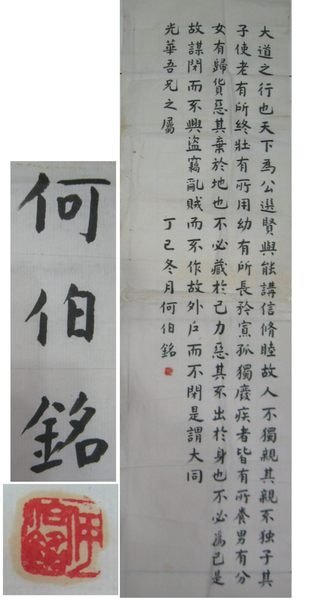 大道之行也天下為公選賢與能講信脩睦故人不獨親其親不獨子其
子使老有所終壯有所用幼有所長矜寡孤獨廢疾者皆有所養男有分
女有歸貨惡其棄於地也不必藏於己力惡其不出於身也不必為己是
故謀閉而不興盜竊亂賊而不作故外戶而不閉是謂大同
光華吾兄之屬 丁巳冬月何伯銘
何伯銘